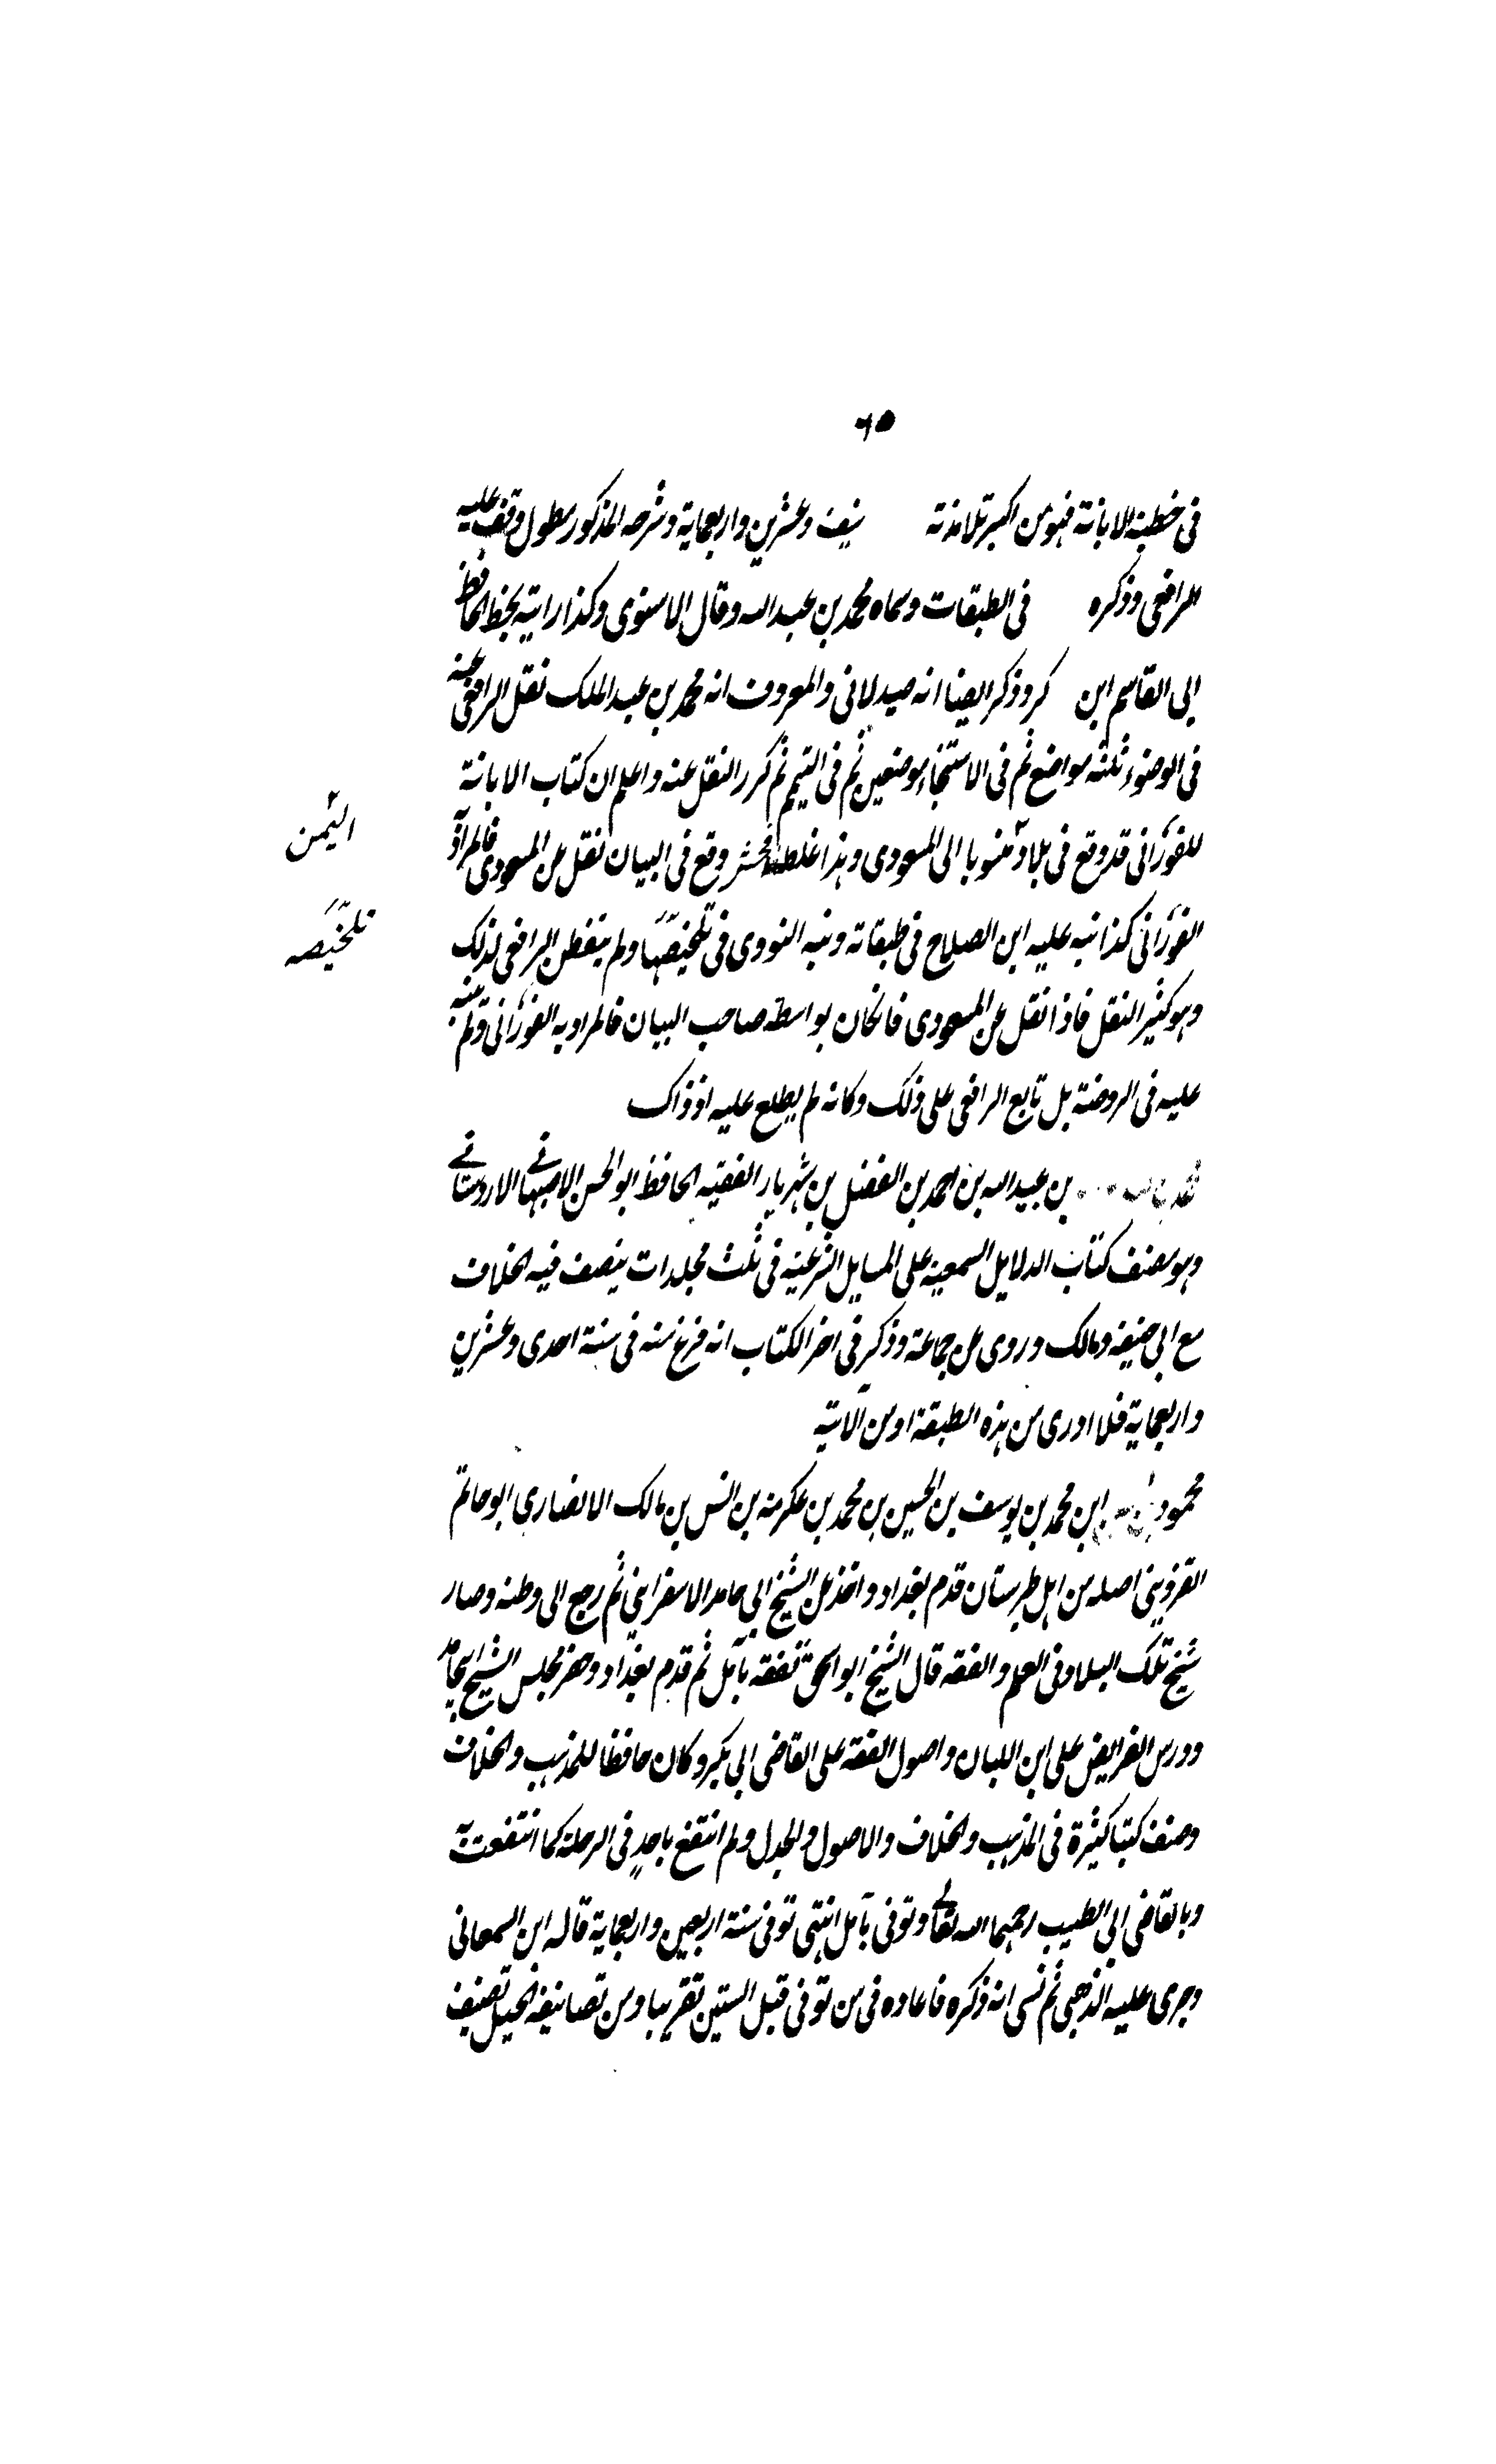 ٦٥
فى خطبة الابانة فهو من اكبر تلامذته نيف وعشرين واربعماية وشرحه المذكور مطول وقف عليه
الرافعى وذكره فى الطبقات وسماه محمد بن عبدالله وقال الاسنوى وكذا رايته بخط الحافظ
ابى القاسم ابن كر وذكر ايضا انه صيدلانى والمعروف انه محمد بن عبد الملك نقل الرافعى عنه
فى الوضوء ثلثه مواضع ثم فى الاستنجاء موضعين ثم فى التيمم ثم كرر النقل عنه واعلم ان كتاب الابانة
للفورانى قد وقع فى بلاد منسوبا الى المسعودى وهذا غلط وقع فى البيان نقل عن المسعودى فالمراد
اليمن
الفورانى كذا نبه عليه ابن الصلاح فى طبقاته ونبه النووى فى تلخيصها ولم يتفطن الرافعى لذلك
تلخيصه
وهو كثير النقل فاذا نقل عن المسعودى فانكان بواسطة صاحب البيان فالمراد به الفورانى ولم ينبه
عليه فى الروضة بل تابع الرافعى على ذلك وكانه لم يطلع عليه اذ ذاك
محمد بن عبيدالله بن احمد بن الفضل بن شهريار الفقيه الحافظ ابو الحسن الاصبهانى الاردستانى
وهو مصنف كتاب الدلايل السمعية على المسايل الشرعية فى ثلث مجلدات ينصف فيه الخلاف
مع ابى حنيفة ومالك وروى عن جماعة وذكر فى اخر الكتاب انه فرغ منه فى سنة احدى وعشرين
واربعماية فلا ادرى من هذه الطبقة او من الآتية
محمود ابن محمد بن يوسف بن الحسين بن محمد بن عكرمة بن انس بن مالك الانصارى ابو حاتم
القزوينى اصله من اهل طبرستان قدم بغداد واخذ عن الشيخ ابى حامد الاسفراينى ثم رجع الى وطنه وصار
شيخ تلك البلاد فى العلم والفقه قال الشيخ ابو اسحق تفقه بآمل ثم قدم بغداد وحضر مجلس الشيخ ابى حامد
ودرس الفرايض على ابن اللبان واصول الفقه على القاضى ابى بكر وكان حافظا للمذهب والخلاف
وصنف كتبا كثيرة فى المذهب والخلاف والاصول والجدل ولم انتفع باحد فى الرحلة كما انتفعت به
وبالقاضى ابى الطيب رحمهما الله تعالى وتوفى بآمل انتهى توفى سنة اربعين واربعماية قاله ابن السمعانى
وجرى عليه الذهبى ثم نسى انه ذكره فاعاده فى من توفى قبل الستين تقريبا ومن تصانيفه الحيل تصنيف